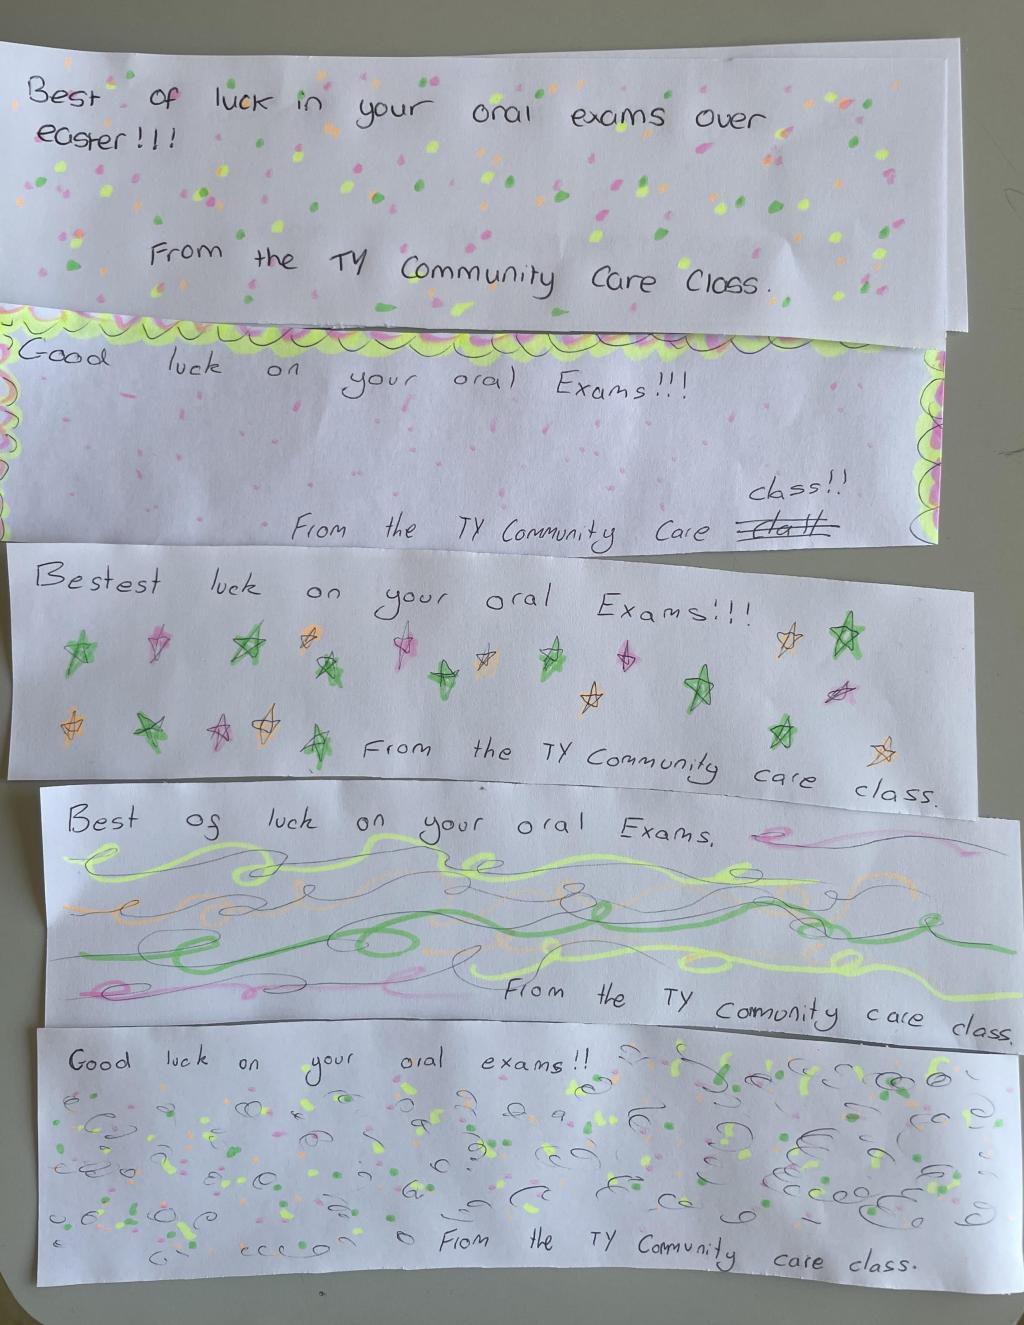 Best of luck in your oral exams over
easter!!!
From the TY Community Care Class.
Good luck on your oral Exams!!!
class!!
From the TY Community Care
Bestest luck on your oral Exams!!!
From the TY Community care class.
Best of luck on your oral Exams.
From the TY Community care class.
Good luck on your oral exams!!
From the TY Community care class.